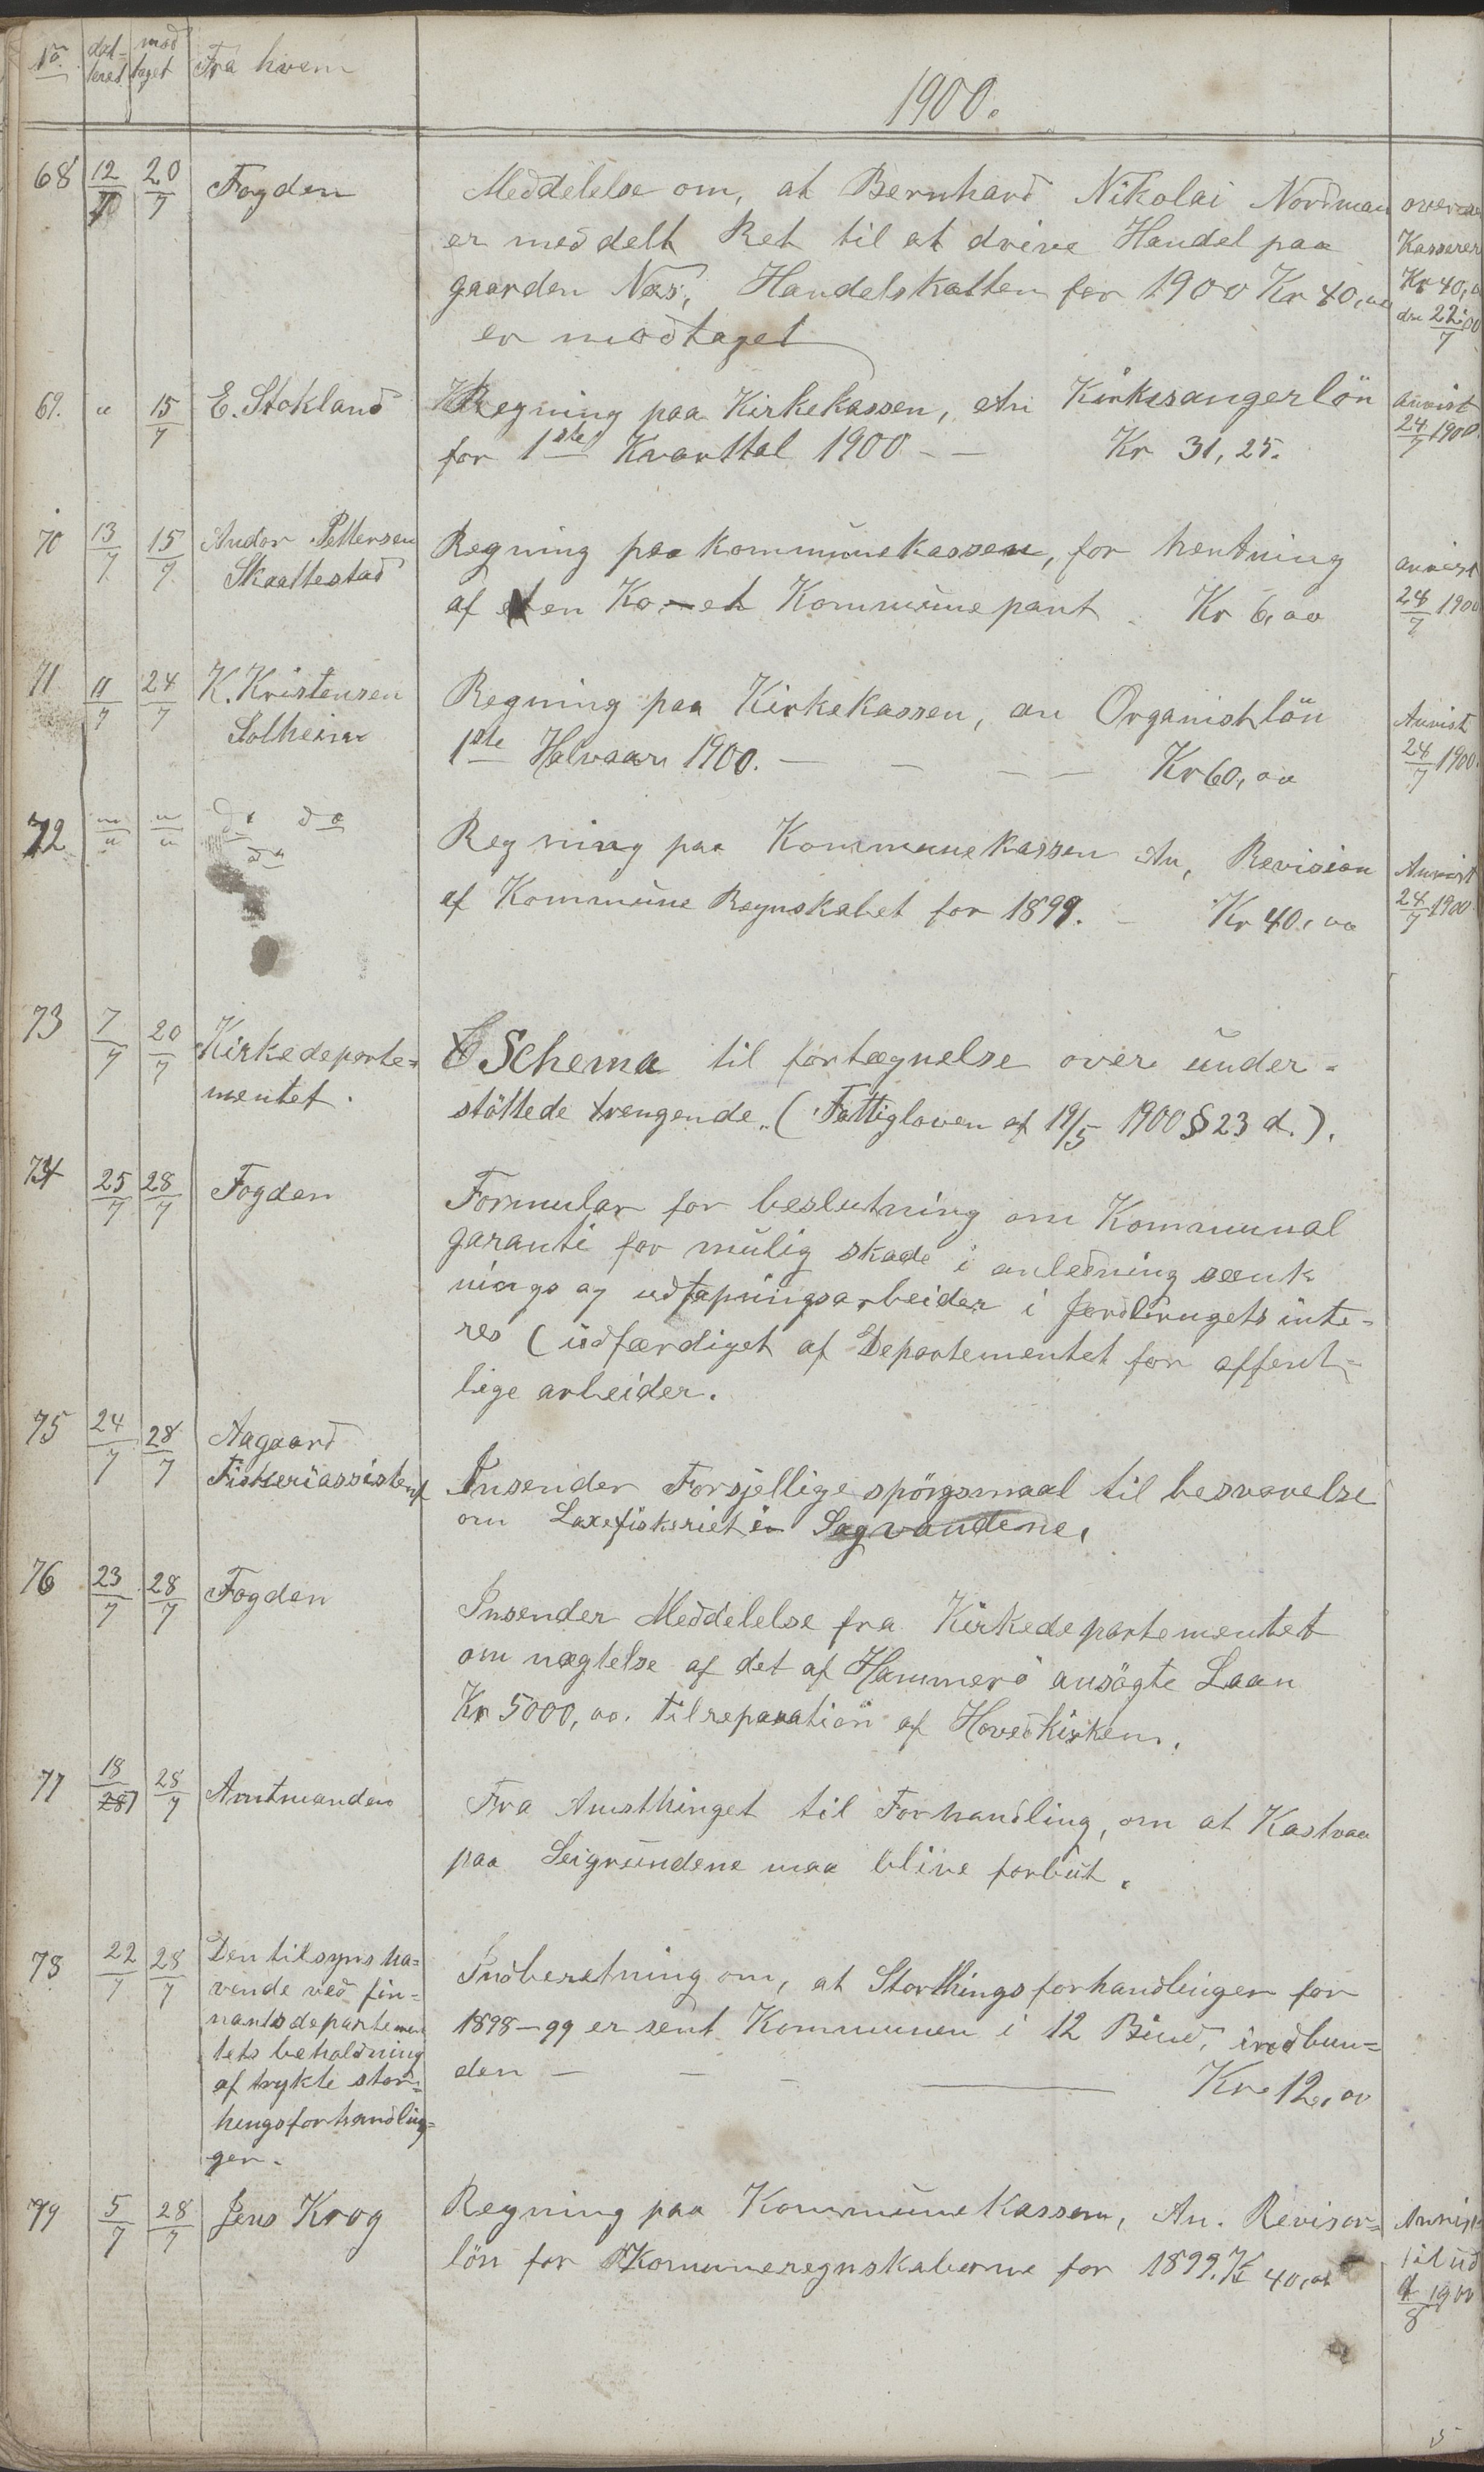 No. dat- mod Fra hvem
teret taget
1900.
68 12/7 20/7 Fogden Meddelelse om, at Bernhard Nikolai Nordman
er meddelt Ret til at drive Handel paa Kasserer
gaarden Næs, Handelskatten for 1900 Kr 40,oo Kr 40,
er modtaget den 22/7 00
69. " 15/7 E. Stokland Regning paa Kirkekassen, An Kirkesangerlön anvist
for 1ste Kvarttal 1900 - - Kr 31,25. 24/7 1900
70 13/7 15/7 Andor Pettersen Regning paa kommunekassen, for hentning anvist
Skaaltestad af en Ko - et Kommunepant. Kr 6,oo 24/7 1900
71 11/7 24/7 K. Kristensen Regning paa Kirkekassen, an Organistlön Anvist
Solheim 1ste Halvaar 1900. - - - - Kr 60,oo 24/7 1900
72 " " do do Regning paa Kommunekassen An, Revision Anvist
do af Kommune Regnskabet for 1899. - Kr 40,oo 24/7 1900
73 7/7 20/7 Kirkedeparte= Schema til fortegnelse over under-
mentet. stöttede trengende. (Fattigloven af 19/5 1900 § 23 d.).
74 25/7 28/7 Fogden Formular for beslutning om Kommunal
garanti for mulig skade i anledning sænk
nings og udtapningsarbeider i Jordbrugets inte-
res (udfærdiget af Departementet for offent-
lige arbeider.
75 24/7 28/7 Aagaard
Fiskeriassistent Insender Forsjellige spörgsmaal til besvarelse
om Laxefiskeriet i Sagvandene.
76 23/7 28/7 Fogden Insender Meddelelse fra Kirkedepartementet
om nægtelse af det af Hammerö ansögte Laan
Kr 5000,oo. til reparation af Hovedkirken.
77 18/7 28/7 Amtmanden Fra Amsthinget til Forhandling, om at Kastvaa
paa Seigrundene maa blive forbut.
78 22/7 28/7 Den tilsyns ha= Indberetning om, at Storthingsforhandlinger for
vende ved fin= 1898-99 er sent Kommunen i 12 Bind, indbun=
nantsdepartemen den - - - Kr. 12,oo
tets beholdning
af trykte stor=
hingsforhandlin=
ger.
79 5/7 28/7 Jens Krog Regning paa Kommunekassen, An. Revisor= Anvist
lön for Komuneregnskaberne for 1899. Kr 40,oo til ud
8 1900